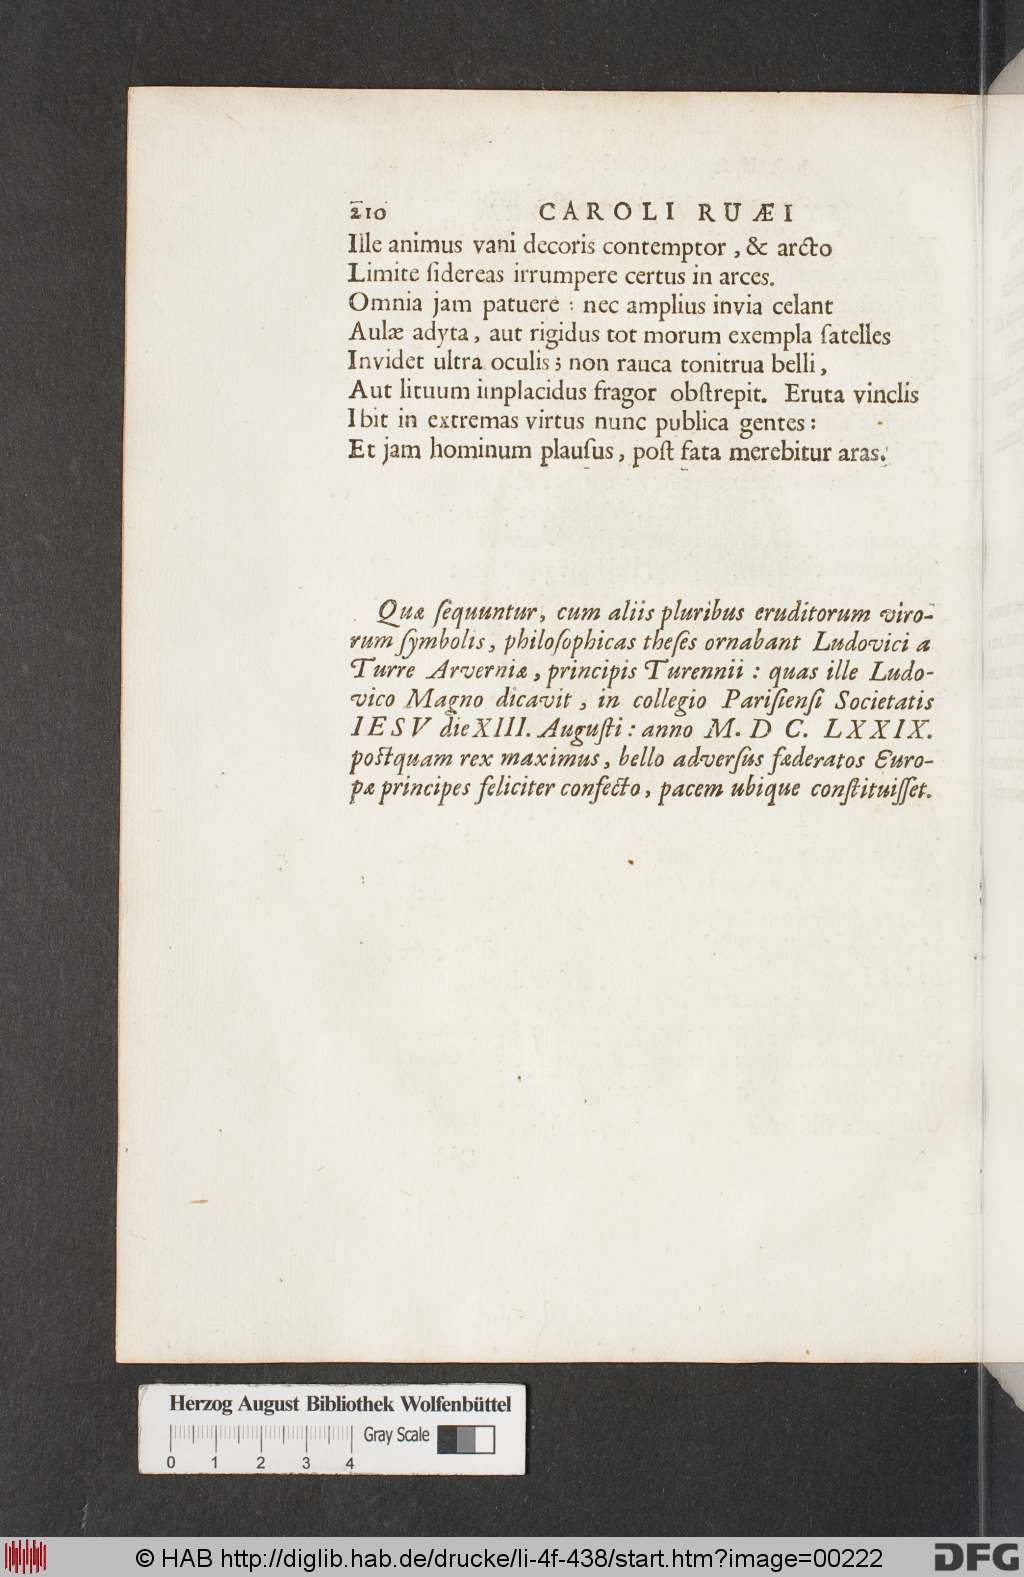 210 CAROLI RUÆI
Ille animus vani decoris contemptor, & arcto
Limite ſidereas irrumpere certus in arces.
Omnia jam patuere : nec amplius invia celant
Aulæ adyta, aut rigidus tot morum exempla ſatelles
Invidet ultra oculis; non rauca tonitrua belli,
Aut lituum implacidus fragor obſtrepit. Eruta vinclis
Ibit in extremas virtus nunc publica gentes:
Et jam hominum plauſus, poſt fata merebitur aras.
Quæ ſequuntur, cum aliis pluribus eruditorum viro-
rum ſymbolis, philoſophicas theſes ornabant Ludovici a
Turre Arverniæ, principis Turennii : quas ille Ludo-
vico Magno dicavit, in collegio Pariſienſi Societatis
IESV die XIII. Auguſti : anno M. D C. LXXIX.
poſtquam rex maximus, bello adverſus fæderatos Euro-
pæ principes feliciter confecto, pacem ubique conſtituiſſet.
Herzog August Bibliothek Wolfenbüttel
Gray Scale
0 1 2 3 4
© HAB http://diglib.hab.de/drucke/li-4f-438/start.htm?image=00222
DFG